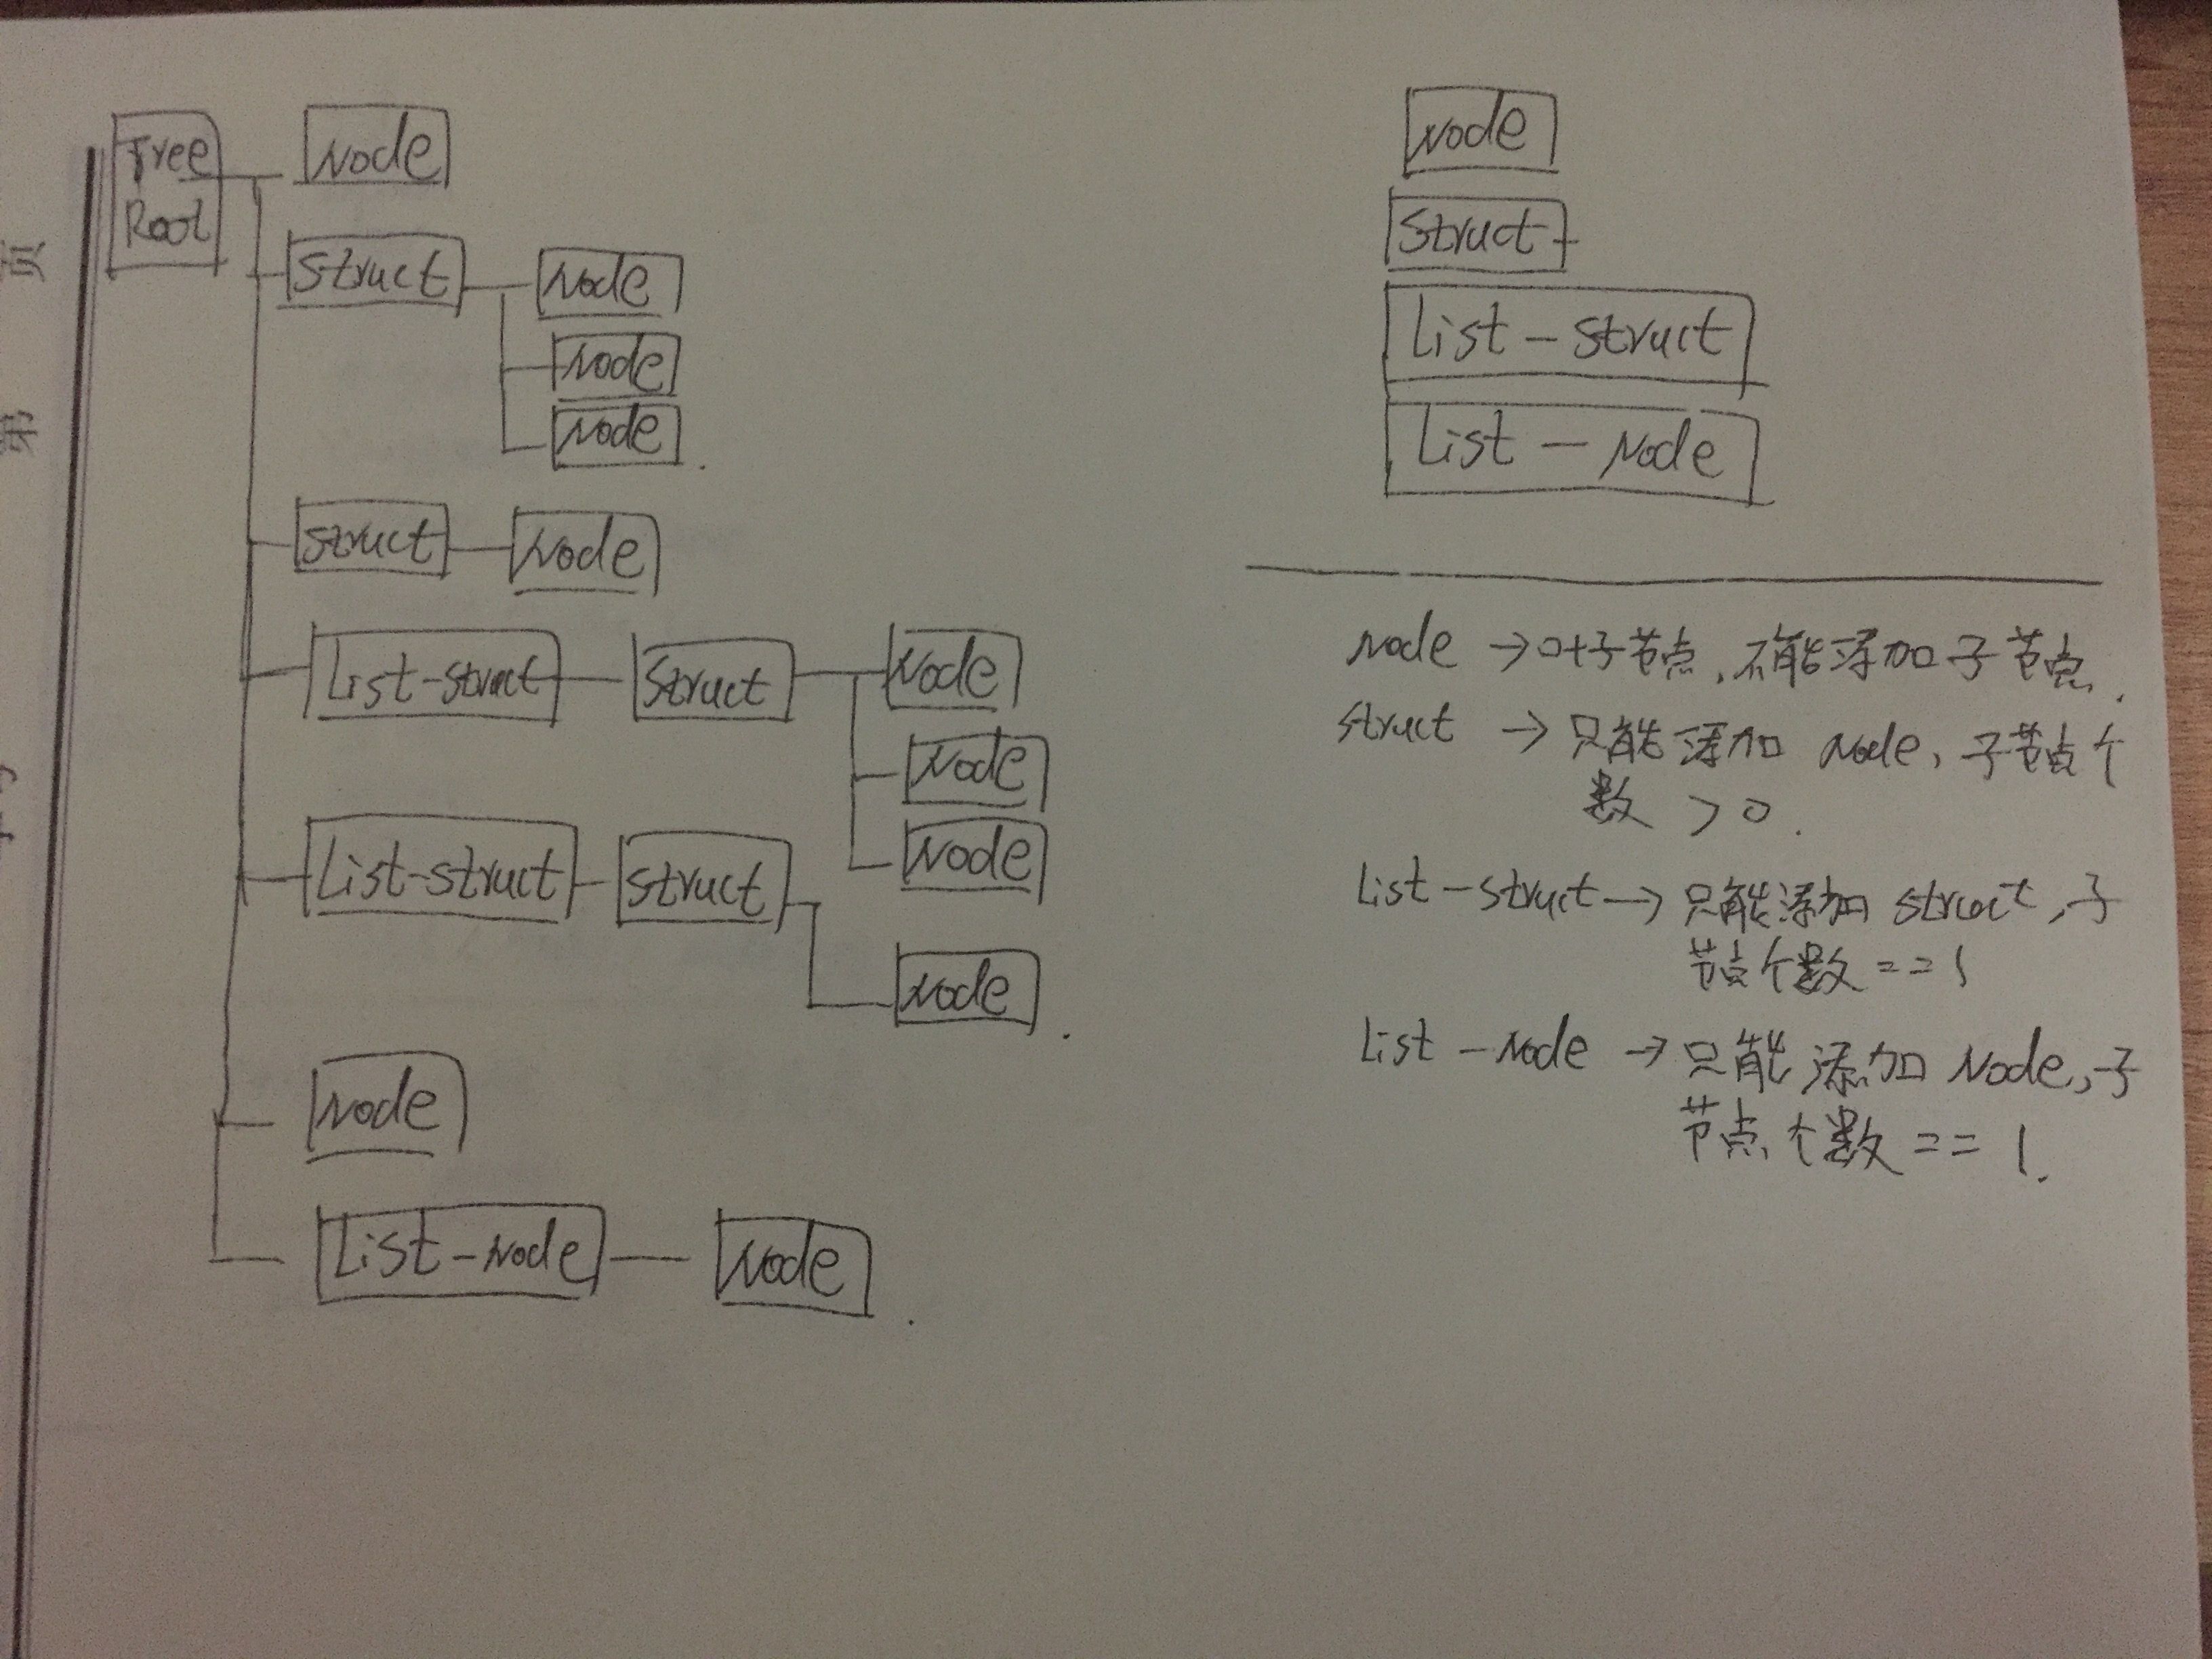 Tree
Root
Node
Struct
Node
Node
Node
Struct
Node
List-Struct
Struct
Node
Node
Node
List-Struct
Struct
Node
Node
List-Node
Node
Node
Struct
List-Struct
List-Node
Node → 0个子节点,不能添加子节点.
Struct → 只能添加 Node, 子节点个
数 > 0.
List-Struct → 只能添加 Struct, 子
节点个数 == 1
List-Node → 只能添加 Node, 子
节点个数 == 1.
页
第